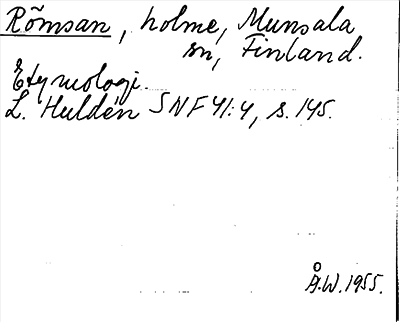 Rõmsan, holme, Munsala
sn, Finland.
Etymologi.
L. Huldén SNF 41:4, s. 145.
Å.W. 1955.